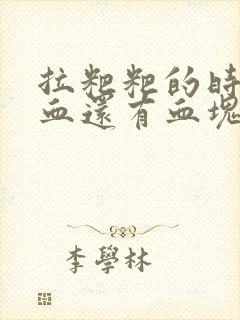 拉粑粑的時
血還有血塊
李學林